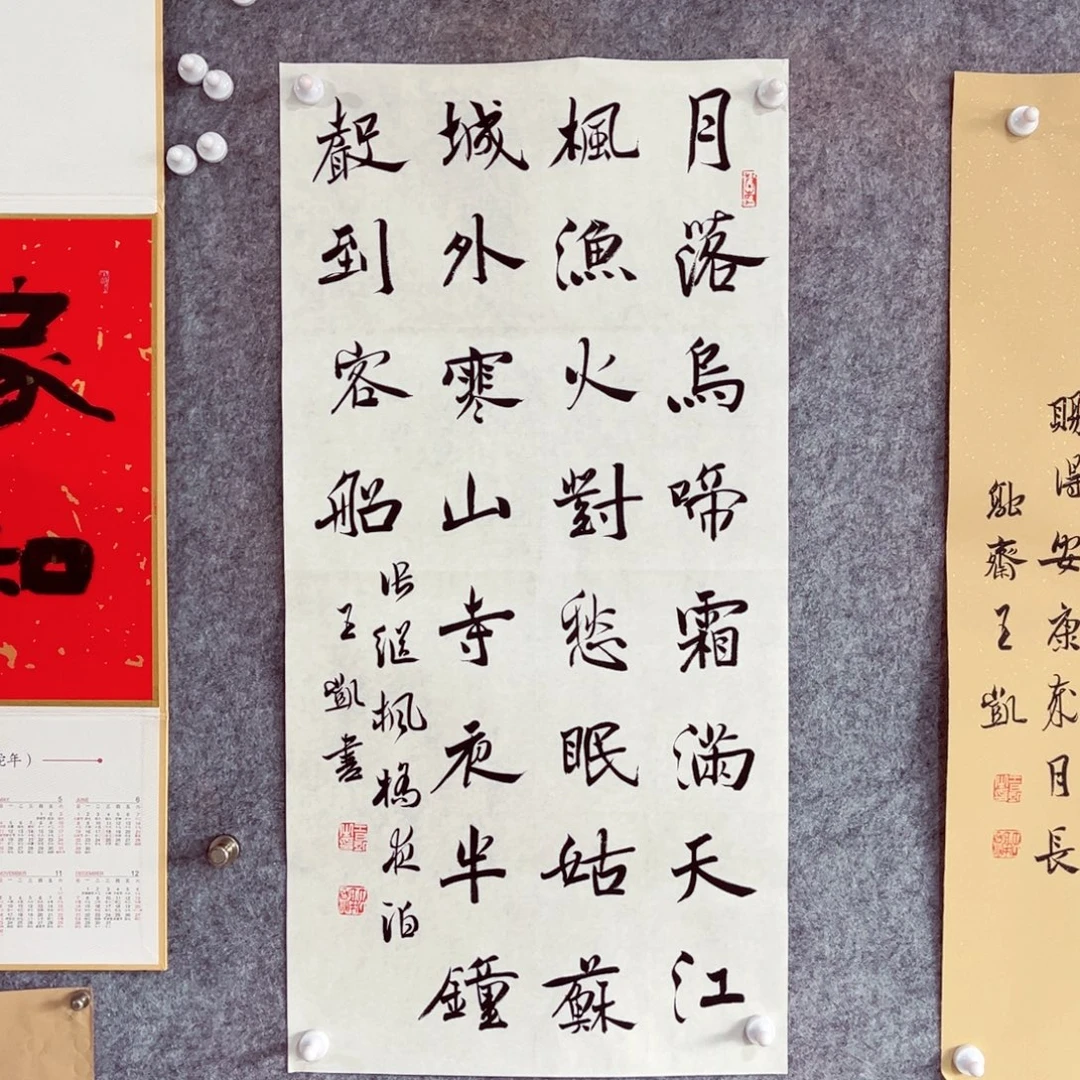 月落烏啼霜滿天江
楓漁火對愁眠姑蘇
城外寒山寺夜半鐘
聲到客船
张继楓橋夜泊
王凱書
賜得安康來日長
融齋王凱
家
和
蛇年）
MAY 5
JUNE 6
NOVEMBER 11
DECEMBER 12